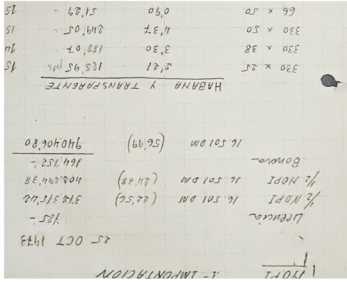 NOPI 1- IMPORTACION
25 OCT 1973
Licencia 725 -
1/2 NOPI 16 501 DM (22,56)
1/2 NOPI 16 501 DM (24,38) 402.294,38
164.752 -
16 501 DM (56,99) 940.406,80
HABANA Y TRANSPARENTE
330 x 25 2'21 125'95 pts 15
330 x 38 3'30 188'07 14
330 x 50 4'37 249'05 - 15
66 x 50 0'90 51'29 - 15